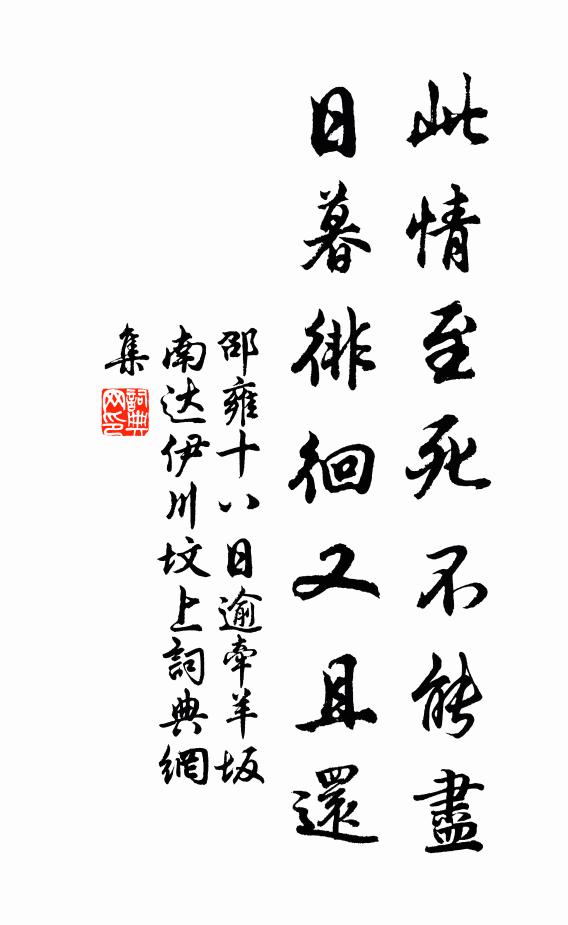 此情至死不能盡
日暮徘徊又且還
邵雍十八日逾牽羊坂
南达伊川坟上詞典網
集
詞典
网印